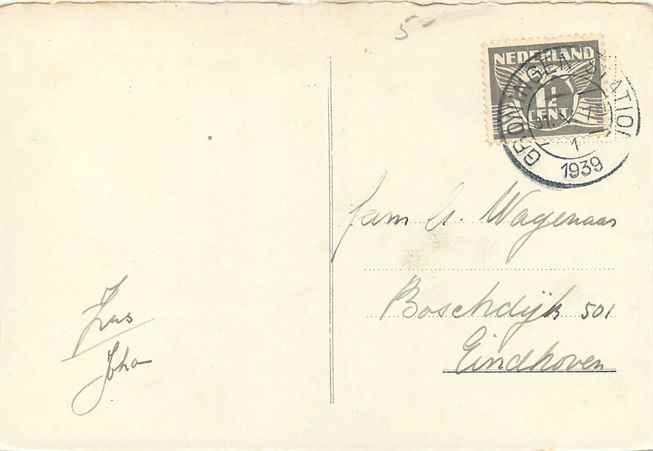 5
NEDERLAND
1½
CENT
GRONINGEN STATION
31.
1
1939
Fam. G. Wagenaar
Boschdijk 501
Eindhoven
Zus
Joha